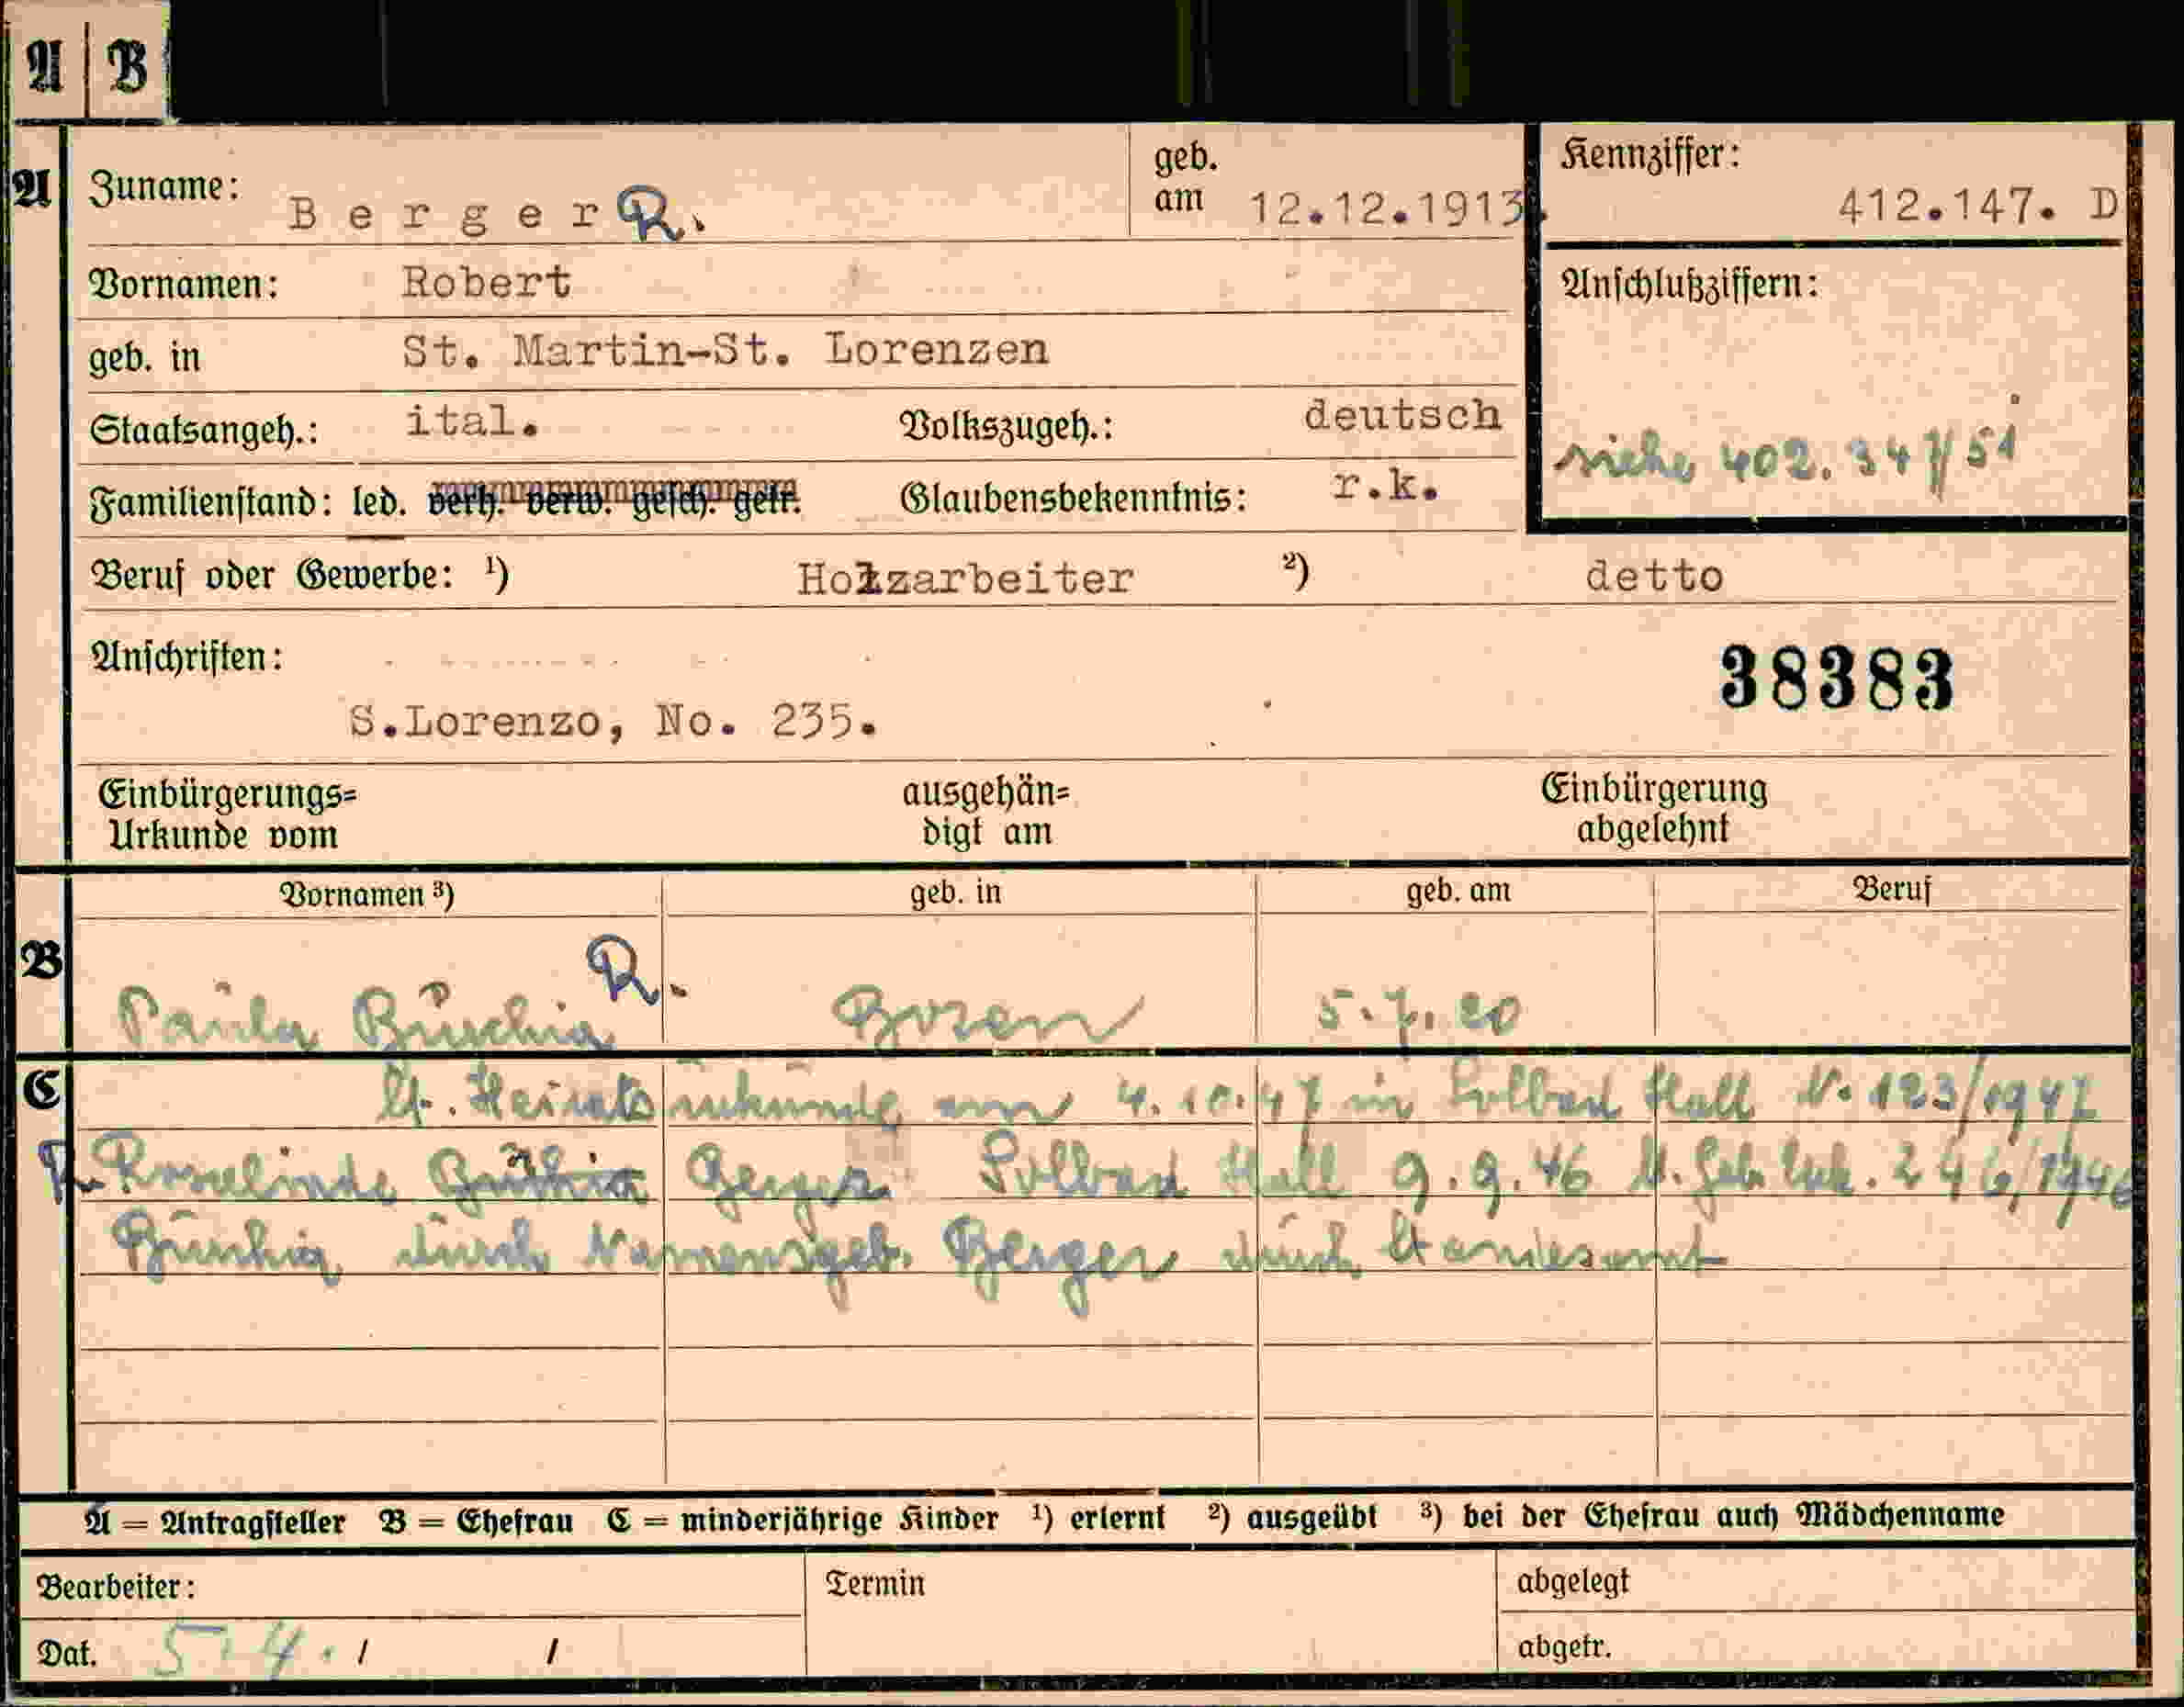 A B
A Zuname: Berger R. geb. am 12.12.1913. Kennziffer: 412.147. D
Vornamen: Robert Anschlußziffern:
geb. in St. Martin-St. Lorenzen
Staatsangeh.: ital. Volkszugeh.: deutsch siehe 402.347/51
Familienstand: led. verh. verw. gesch. getr. Glaubensbekenntnis: r.k.
Beruf oder Gewerbe: ¹) Holzarbeiter ²) detto
Anschriften: 38383
S.Lorenzo, No. 235.
Einbürgerungs= ausgehän= Einbürgerung
Urkunde vom digt am abgelehnt
Vornamen ³) geb. in geb. am Beruf
B R.
Paula Bozen 5.7.20
C lt. Heiratsurkunde am 4.10.47 in Solbad Hall Nr. 123/1947
R. Rosalinde Berger Solbad Hall 9.9.46 lt. Geb. Urk. 246/1946
durch Namensgeb. Berger durch Standesamt
A = Antragsteller B = Ehefrau C = minderjährige Kinder ¹) erlernt ²) ausgeübt ³) bei der Ehefrau auch Mädchenname
Bearbeiter: Termin abgelegt
Dat. 5.4. / / abgetr.